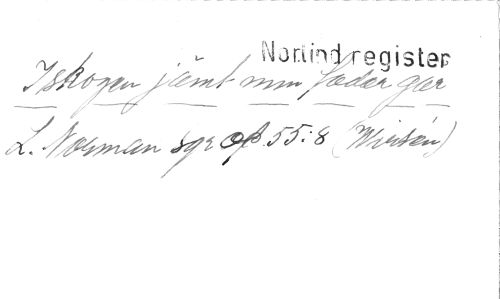 Norlind register
I skogen jämt min fader går
L. Norman sgr op. 55:8 (Wirsén)